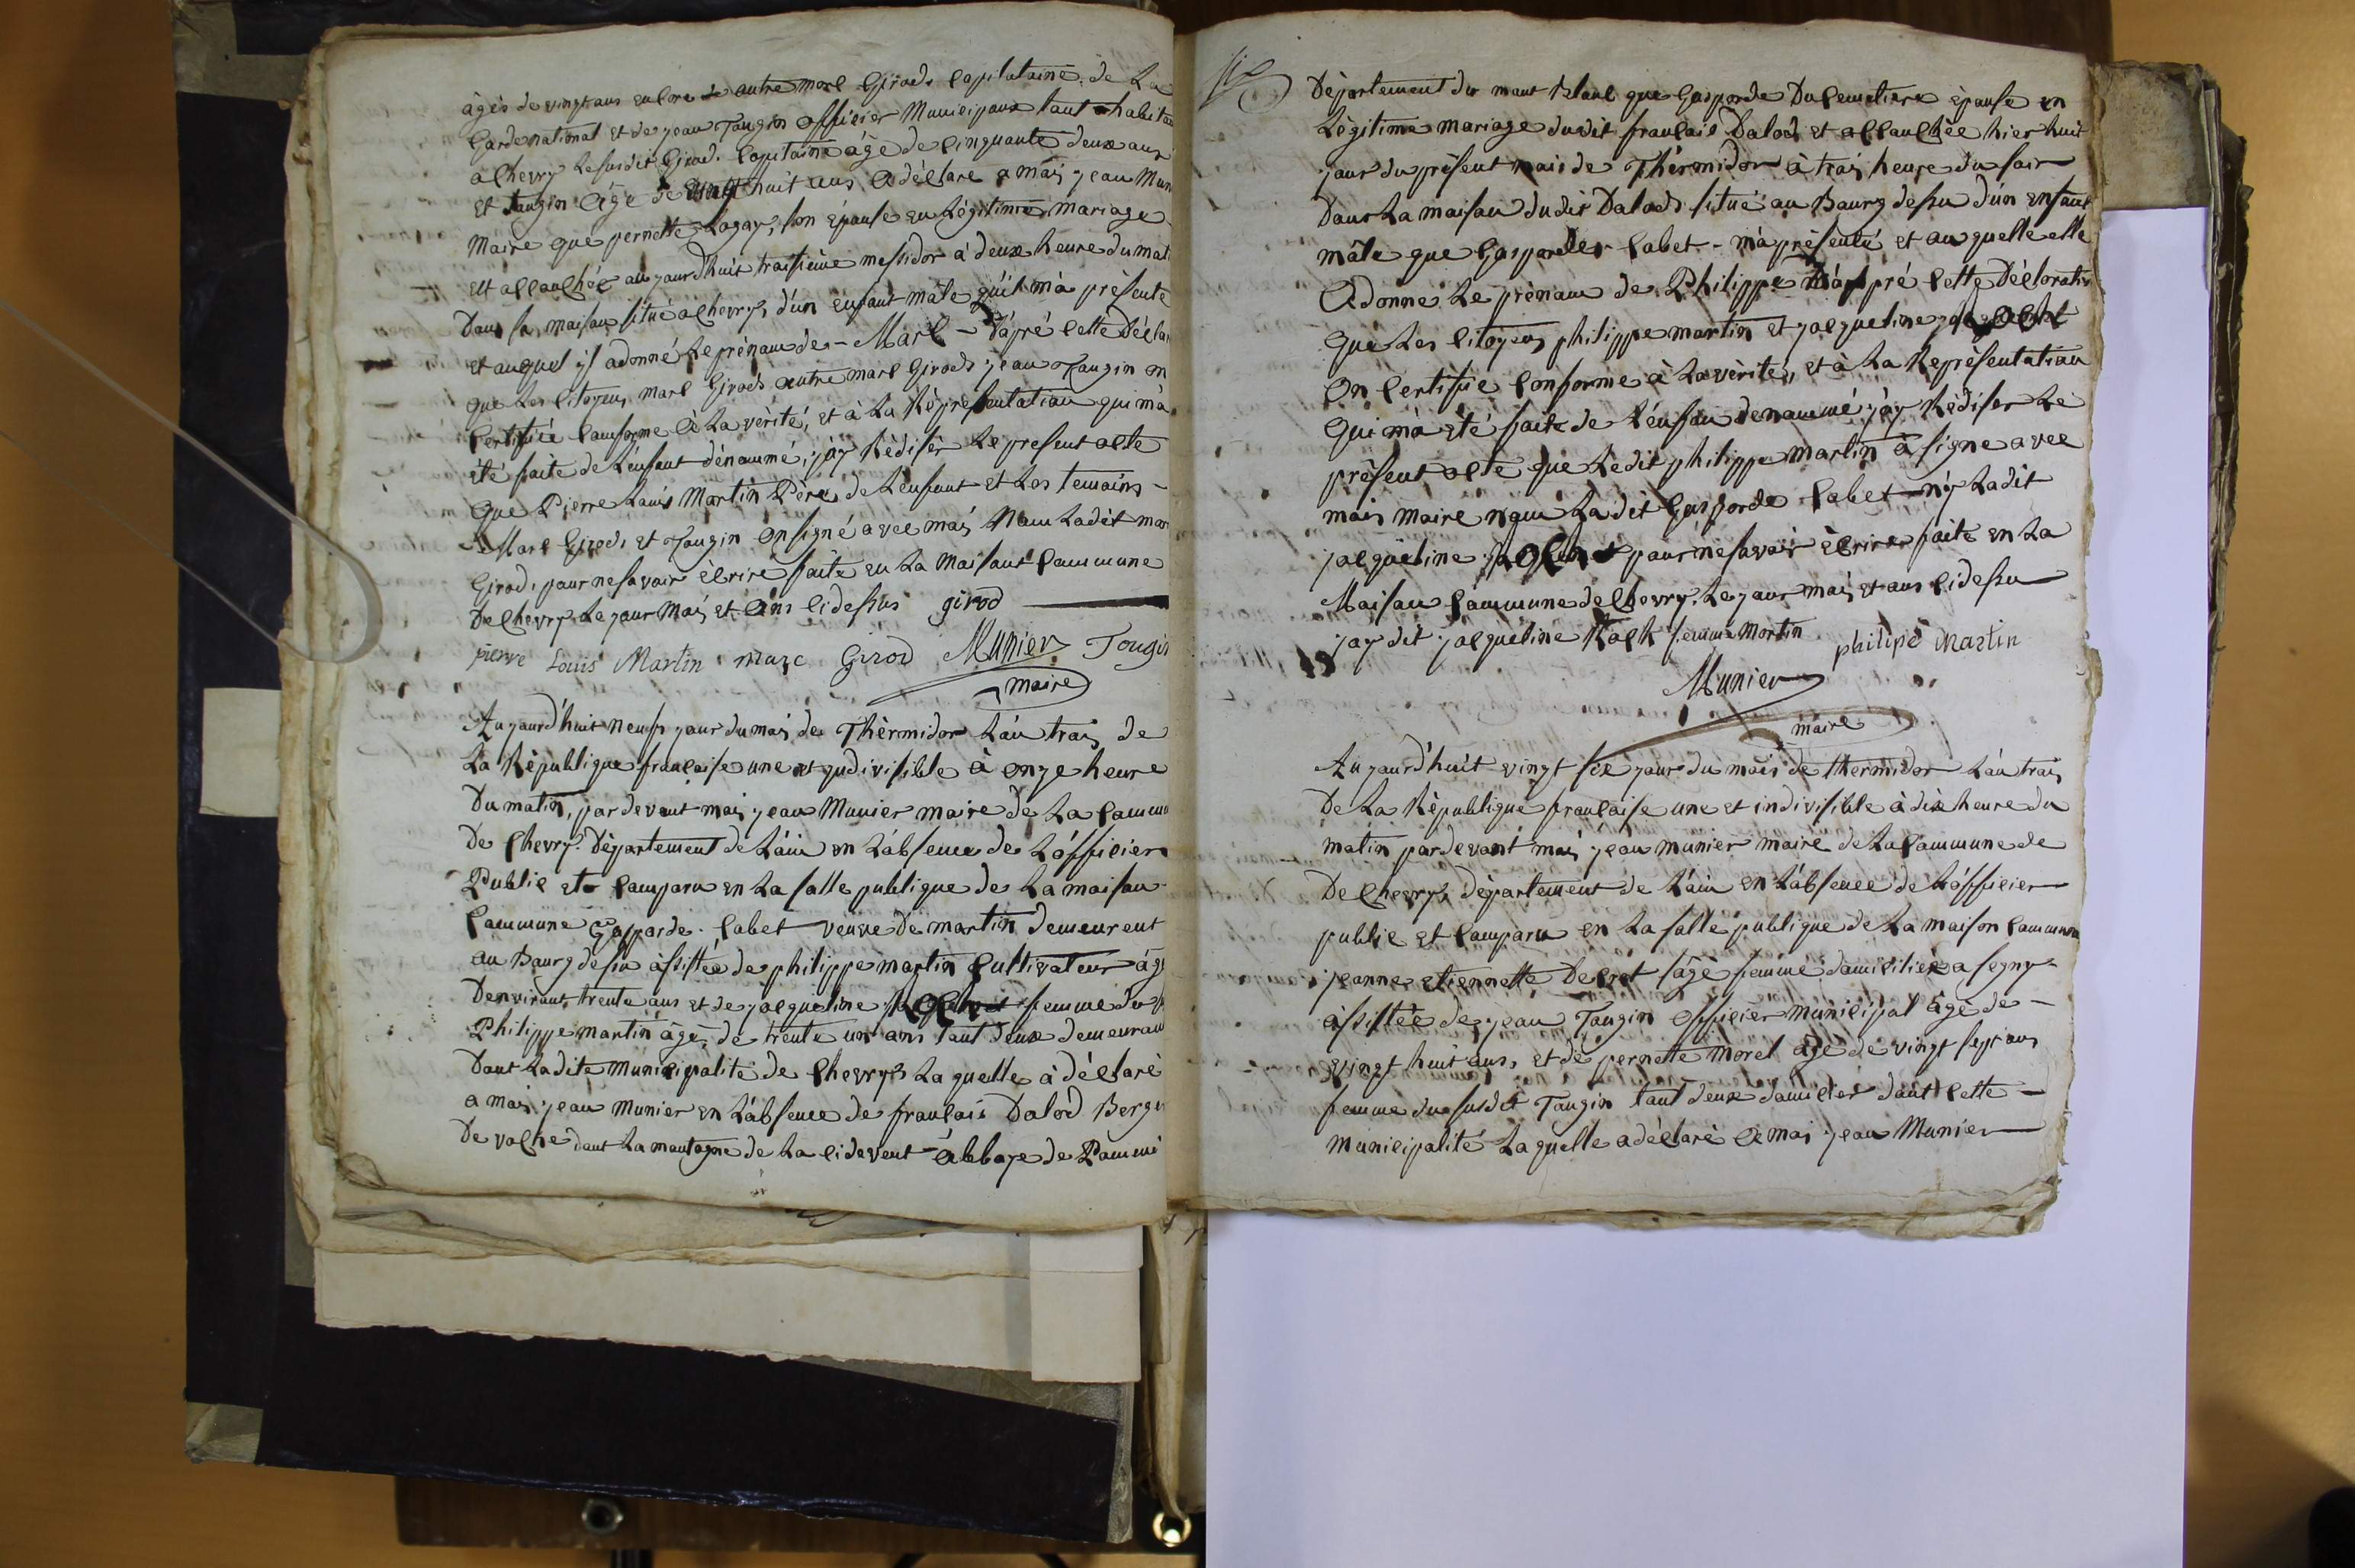 âgés de vingt ans encore de autre marc Girod. Capitataine. de La
Garde national et de jean Tougin officier Municipaux tout habita
a Chevry Le susdit Girod. Capitaine âgé de cinquante deux ans
et Tougin âgé de vingt huit ans a déclaré a moi jean Mun
Maire que pernette Lagay, son épouse en Légitime mariage
est accouchée aujourd'huit troisième messidor à deux heure du mat
Dans sa maison situé a Chevry, d'un enfant mâle qu'il m'à présenté
et auquel il a donné Le prénom de - Marc - D'apré cette Décla
que Les citoyens marc Girod. autre marc Girod. jean Tougin on
Certifiée Conforme à La vérité, et à La Représentation qui m'à
été faite de L'enfant dénommé, j'ay Rédiser Le présent acte
Que Pierre Louis Martin Père de L'enfant et Les temoins -
Marc Girod. et Tougin on signé avec moi Non Ladit marc
Girod. pour ne savoir écrire faite en La Maison Commune
De Chevry Le jour Mois et Ans ci dessus girod
pierre Louis Martin marc Girod Munier Tougin
maire
Aujourd'huit neufs jour du mois de Thèrmidor L'an trois de
La République française une et yndivisible à onze heure
Du matin, par devant moi jean Munier maire de La Commu
De Chevry. Département de L'ain en L'absence de L'officier
Public et Comparu en La salle publique de La maison
Commune Gasparde. Cabet veuve De martin demeurent
au Bourg dessu assistée de philippe martin Cultivateur âgé
Denvirons trente ans et de jacqueline femme du
Philippe martin âgé, de trente un ans tout deux demeuran
Dant Ladite Municipalité de Chevry. La quelle à déclaré
a moi jean Munier en L'absence de français Dalod Berge
De vache dant La montagne de La cidevent Abbaye de Pommi
Département du mont Blanc que Gasparde Ducemetiere épouse en
Légitime mariage dudit français Dalod, et accouchée hier huit
jour du présent mois de Thérmidor à trois heure du soir
Dans La maison dudit Dalod. situé au Bourg dessu d'un enfant
mâle que Gasparde Cabet - m'à présenté et au quelle elle
A donné Le prénom de Philippe D'appré cette Déclaration
Que Les citoyens philippe martin et jacqueline
On Certifié Conforme à La vérité, et à La Représentation
Qui m'à été faite de L'énfan denommé, j'ày Rédiser Le
présent acte que Ledit philippe martin à signe avec
moi maire non La dit Gasparde Cabet n'y Ladit
jacqueline pour ne savoir écrire faite en La
Maison Commune de Chevry, Le jour mois et ans ci dessu
jay dit jacqueline Roch femme Martin philipe Martin
Munier
maire
Aujourd'huit vingt six jour du mois de thermidor L'an trois
De La République française une et indivisible à dix heure du
matin par devant moi jean munier maire de La Commune de
De Chevry, département de L'ain en L'absence de L'officier
public et Comparu en La salle publique de La maison Commun
jeanne etiennette Decret sâgé femme domicilier a segny
assistée de jean Tougin Officier municipal âgé de -
vingt huit ans, et de pernette morel âgé de vingt sept ans
femme du susdit Tougin tout deux domicilier dant cette -
municipalité La quelle a déclaré a moi jean Munier